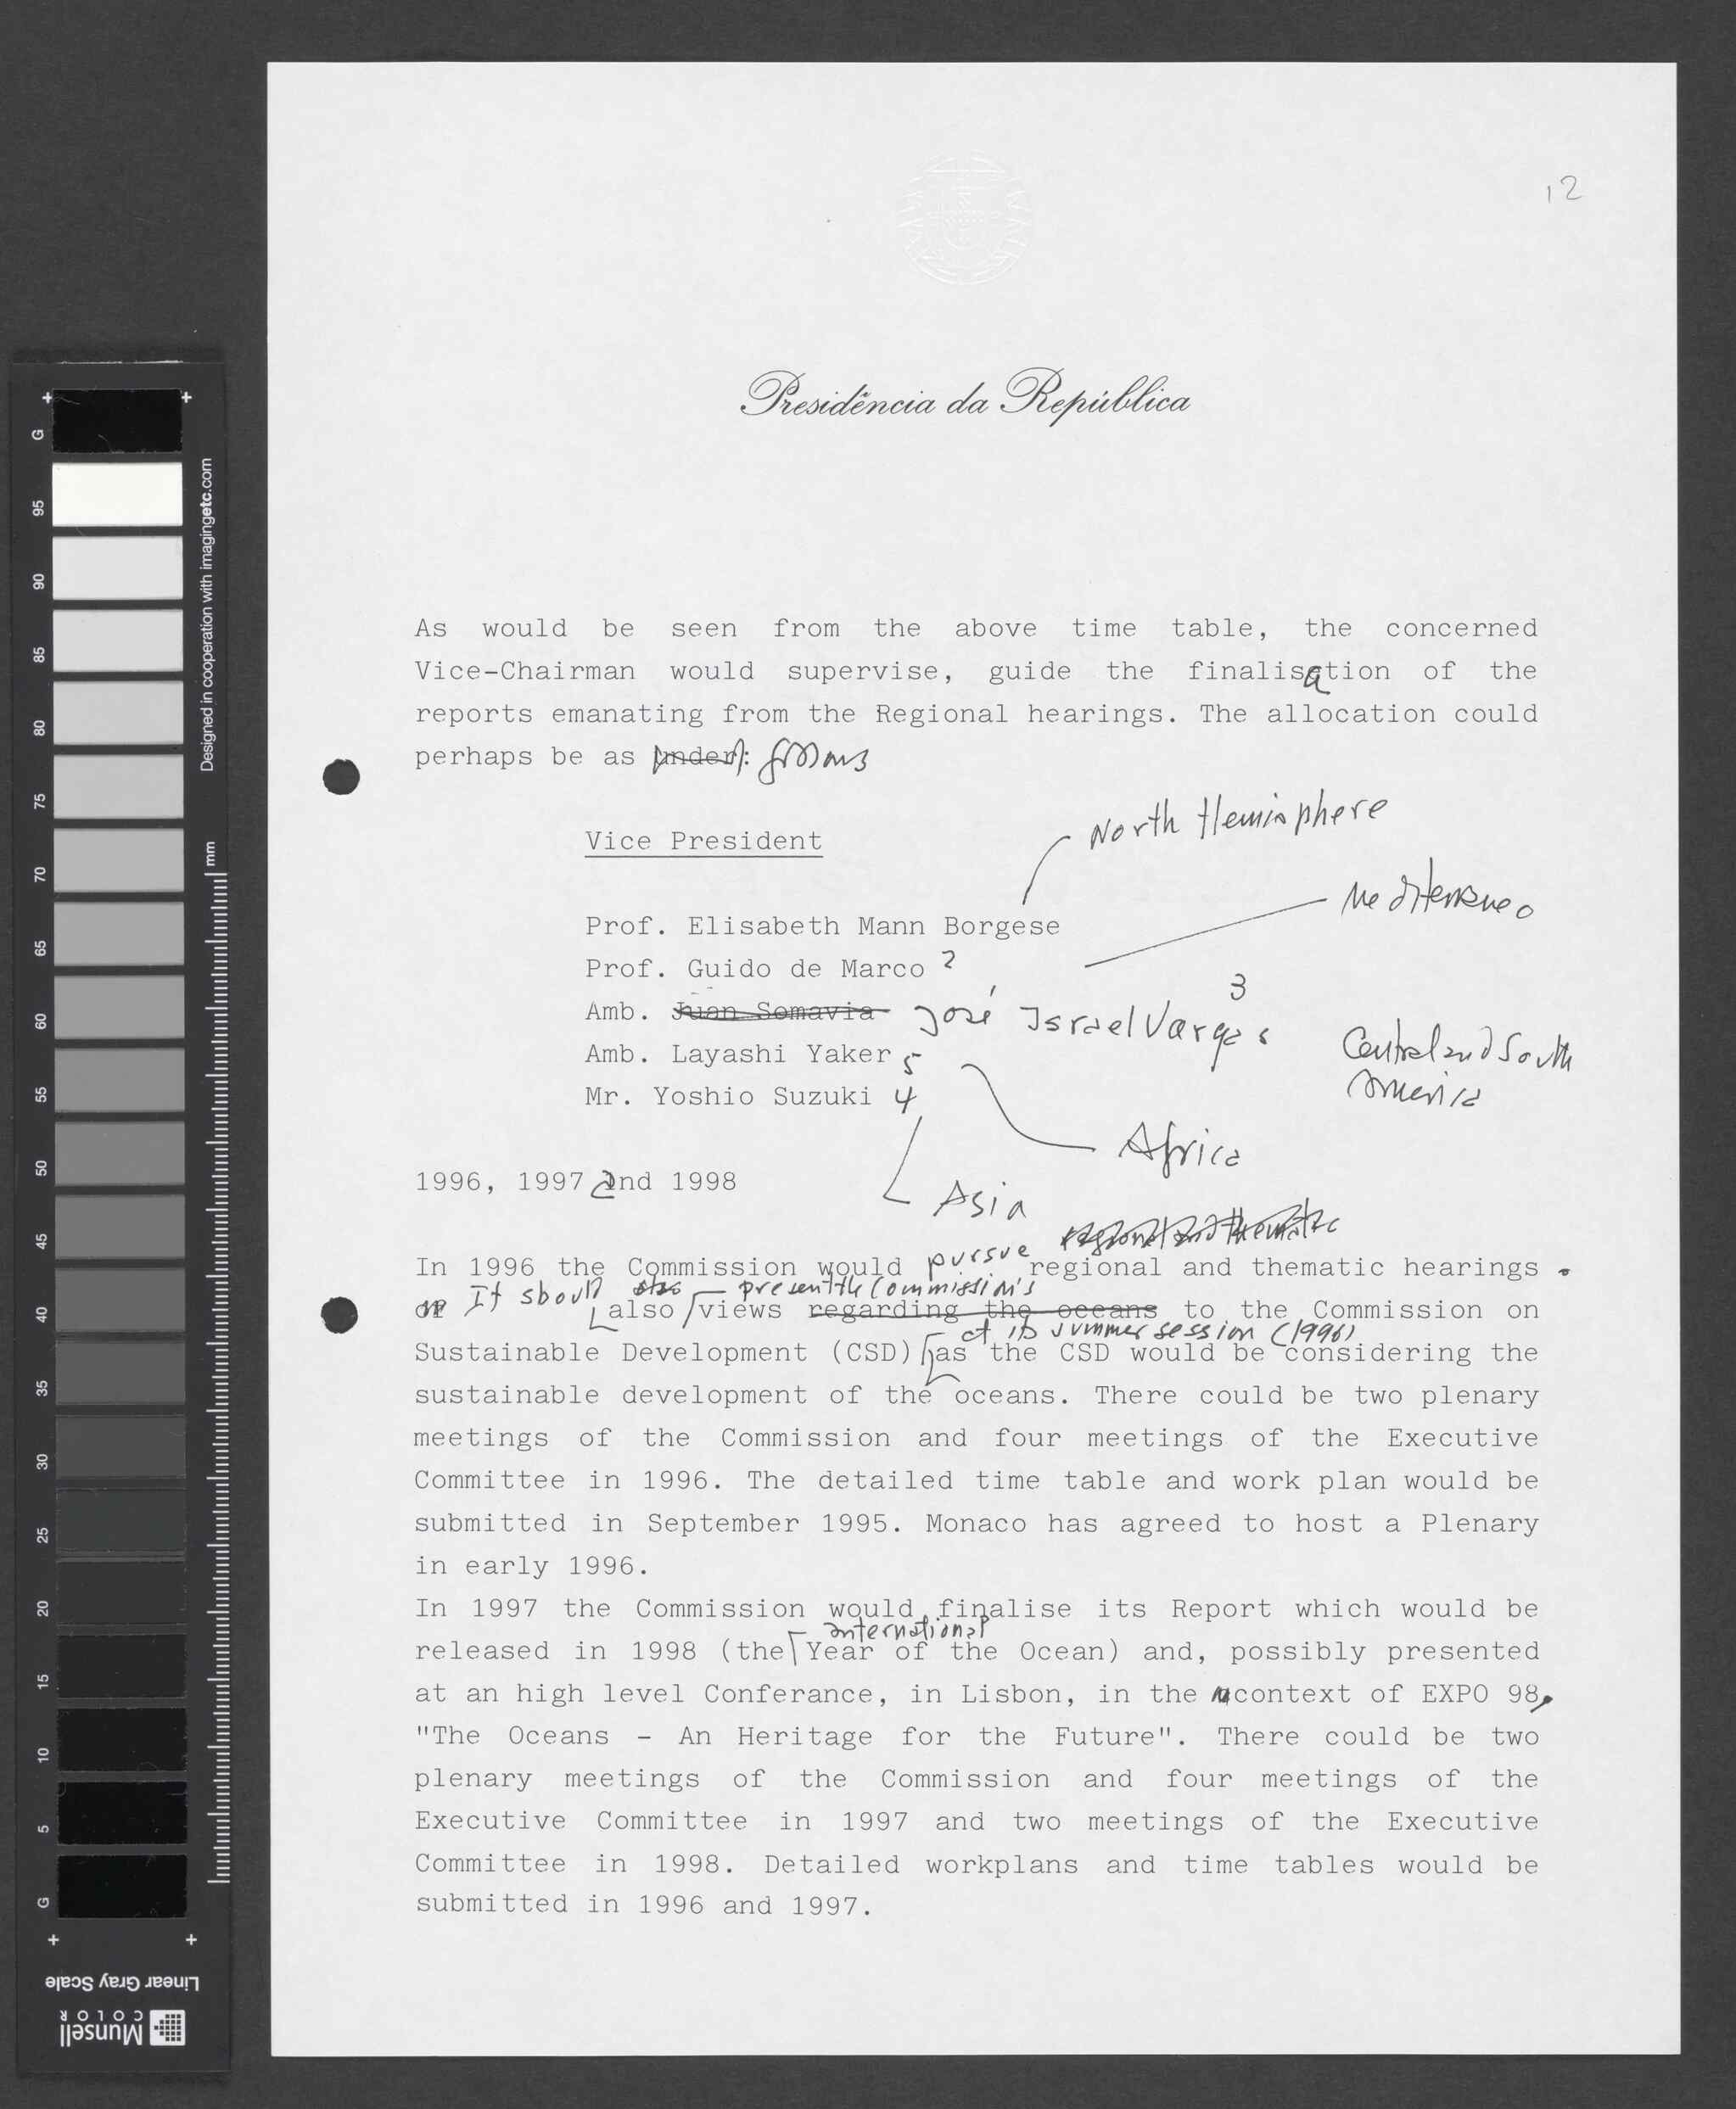 12
Presidência da República
As would be seen from the above time table, the concerned
Vice-Chairman would supervise, guide the finalisation of the
reports emanating from the Regional hearings. The allocation could
perhaps be as under: follows
North Hemisphere
Vice President
Mediterraneo
Prof. Elisabeth Mann Borgese
Prof. Guido de Marco 2
3
Amb. Juan Somavia José Israel Vargas
Central and South
America
Amb. Layashi Yaker 5
Mr. Yoshio Suzuki 4
Africa
1996, 1997 and 1998
Asia
regional and thematic
In 1996 the Commission would pursue regional and thematic hearings.
It should present the Commission's
also views regarding the oceans to the Commission on
at its summer session (1996)
Sustainable Development (CSD) as the CSD would be considering the
sustainable development of the oceans. There could be two plenary
meetings of the Commission and four meetings of the Executive
Committee in 1996. The detailed time table and work plan would be
submitted in September 1995. Monaco has agreed to host a Plenary
in early 1996.
In 1997 the Commission would finalise its Report which would be
international
released in 1998 (the Year of the Ocean) and, possibly presented
at an high level Conferance, in Lisbon, in the context of EXPO 98,
"The Oceans - An Heritage for the Future". There could be two
plenary meetings of the Commission and four meetings of the
Executive Committee in 1997 and two meetings of the Executive
Committee in 1998. Detailed workplans and time tables would be
submitted in 1996 and 1997.
G
95
90
85
80
75
70
65
60
55
50
45
40
35
30
25
20
15
10
5
G
Designed in cooperation with imagingetc.com
mm
Linear Gray Scale
Munsell
COLOR